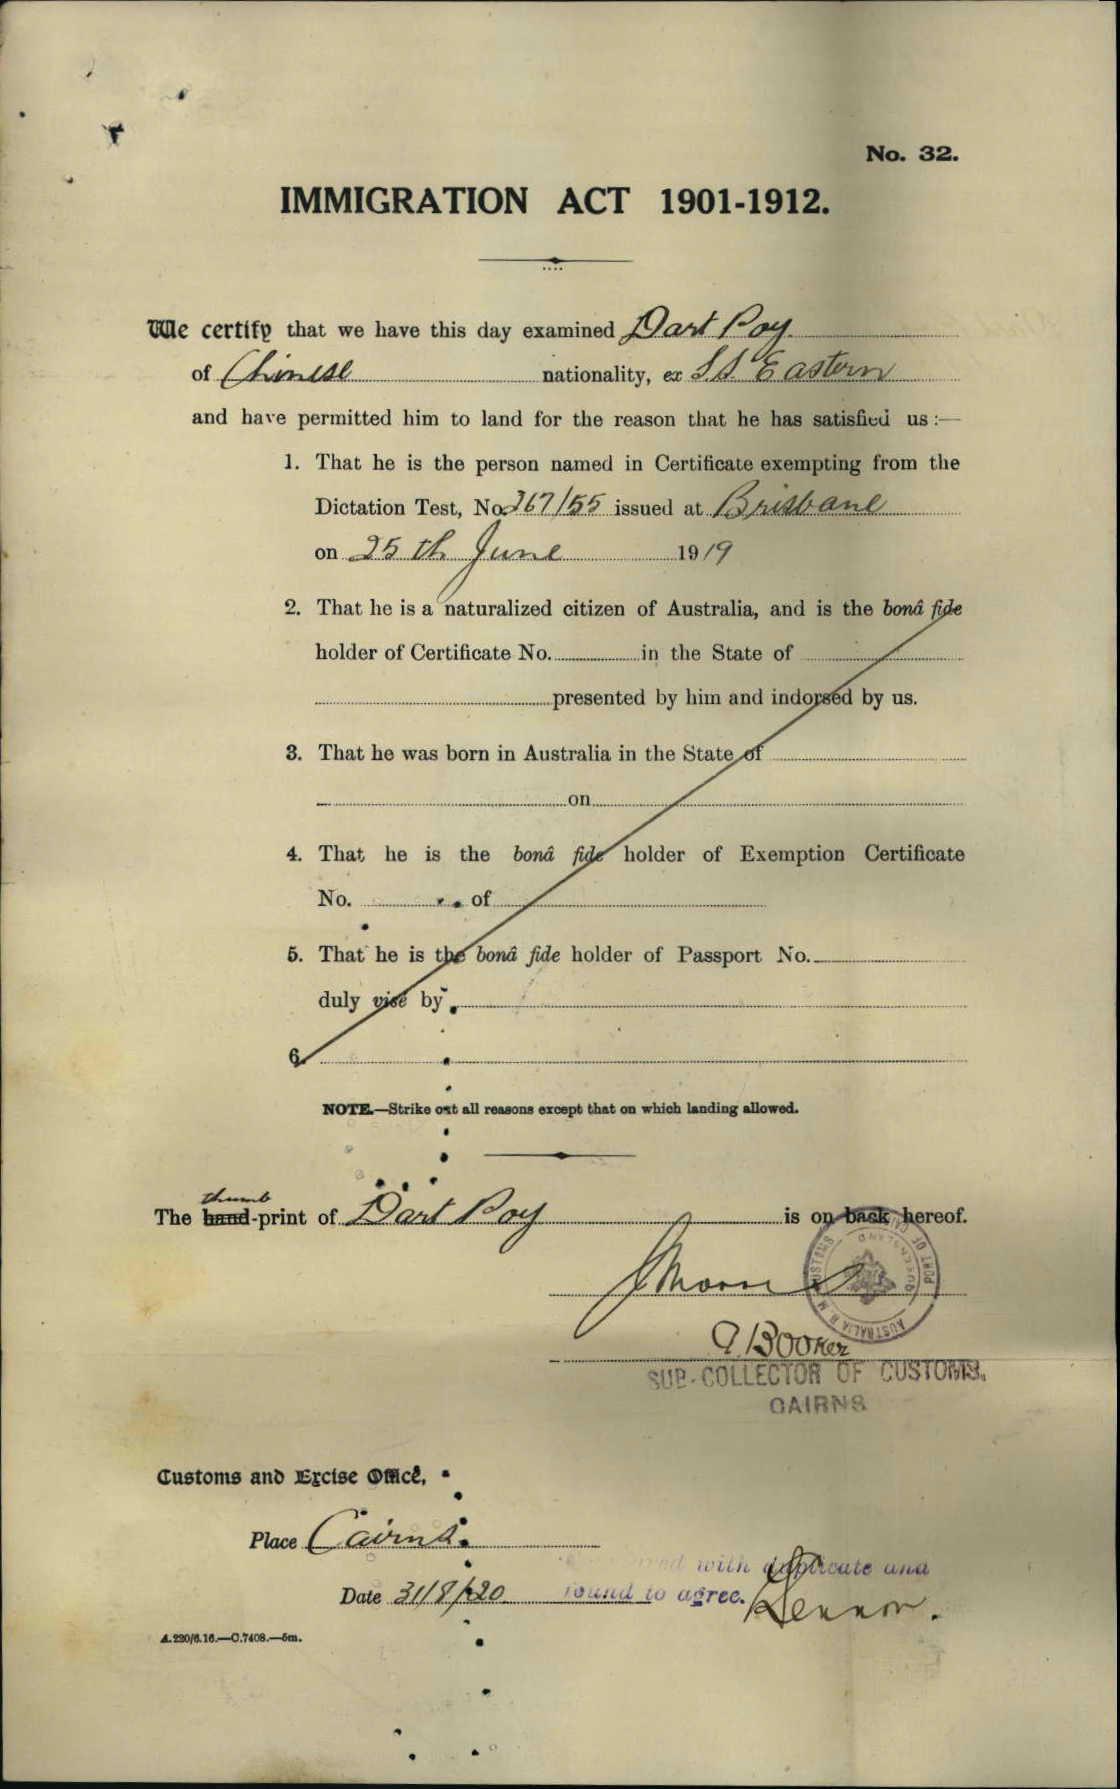 No. 32.
IMMIGRATION ACT 1901-1912.
We certify that we have this day examined Dart Poy
of Chinese nationality, ex S.S. Eastern
and have permitted him to land for the reason that he has satisfied us :—
1. That he is the person named in Certificate exempting from the
Dictation Test, No. 267/55 issued at Brisbane
on 25th June 1919
2. That he is a naturalized citizen of Australia, and is the bonâ fide
holder of Certificate No. in the State of
presented by him and indorsed by us.
3. That he was born in Australia in the State of
on
4. That he is the bonâ fide holder of Exemption Certificate
No. of
5. That he is the bonâ fide holder of Passport No.
duly visé by
6.
NOTE.—Strike out all reasons except that on which landing allowed.
thumb
The hand-print of Dart Poy is on back hereof.
PORT OF CAIRNS QUEENSLAND CUSTOMS AUSTRALIA
A Booker
SUB-COLLECTOR OF CUSTOMS.
CAIRNS
Customs and Excise Office,
Place Cairns.
with duplicate and
Date 31/8/20 found to agree.
A.220/6.16.—C.7408.—5m.